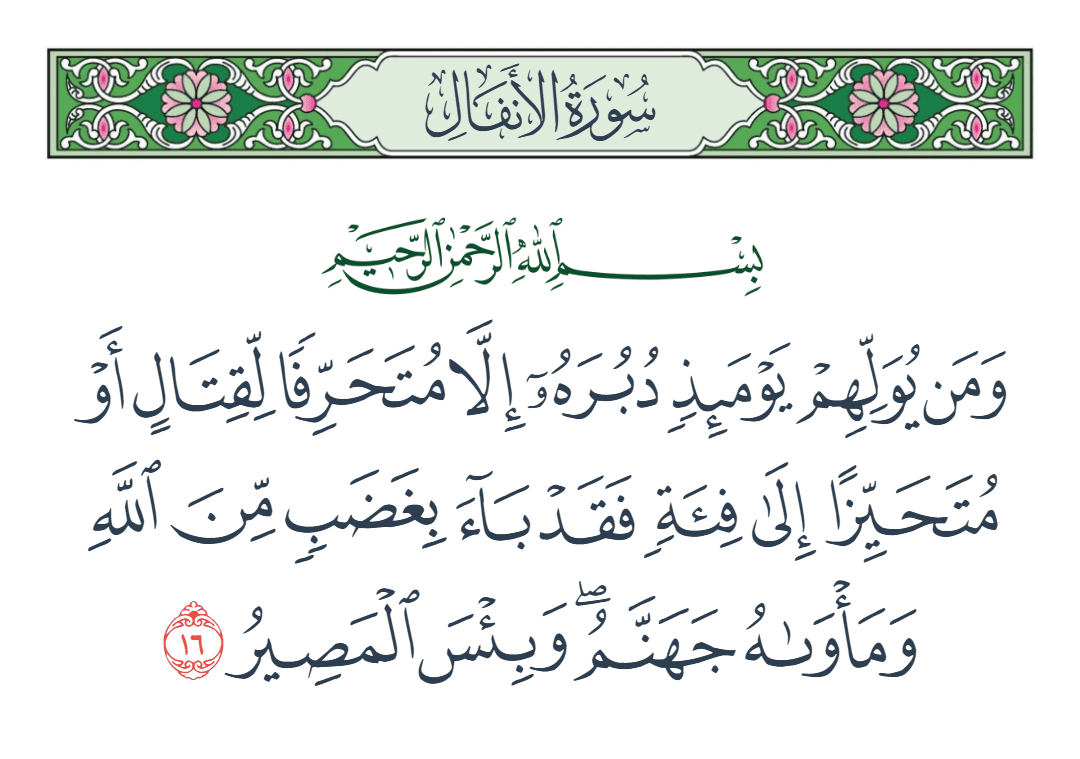 سُورَةُ الأَنفَالِ
بِسْمِ ٱللَّهِ ٱلرَّحْمَٰنِ ٱلرَّحِيمِ
وَمَن يُوَلِّهِمْ يَوْمَئِذٍ دُبُرَهُۥٓ إِلَّا مُتَحَرِّفًا لِّقِتَالٍ أَوْ
مُتَحَيِّزًا إِلَىٰ فِئَةٍ فَقَدْ بَآءَ بِغَضَبٍ مِّنَ ٱللَّهِ
وَمَأْوَىٰهُ جَهَنَّمُ ۖ وَبِئْسَ ٱلْمَصِيرُ ١٦